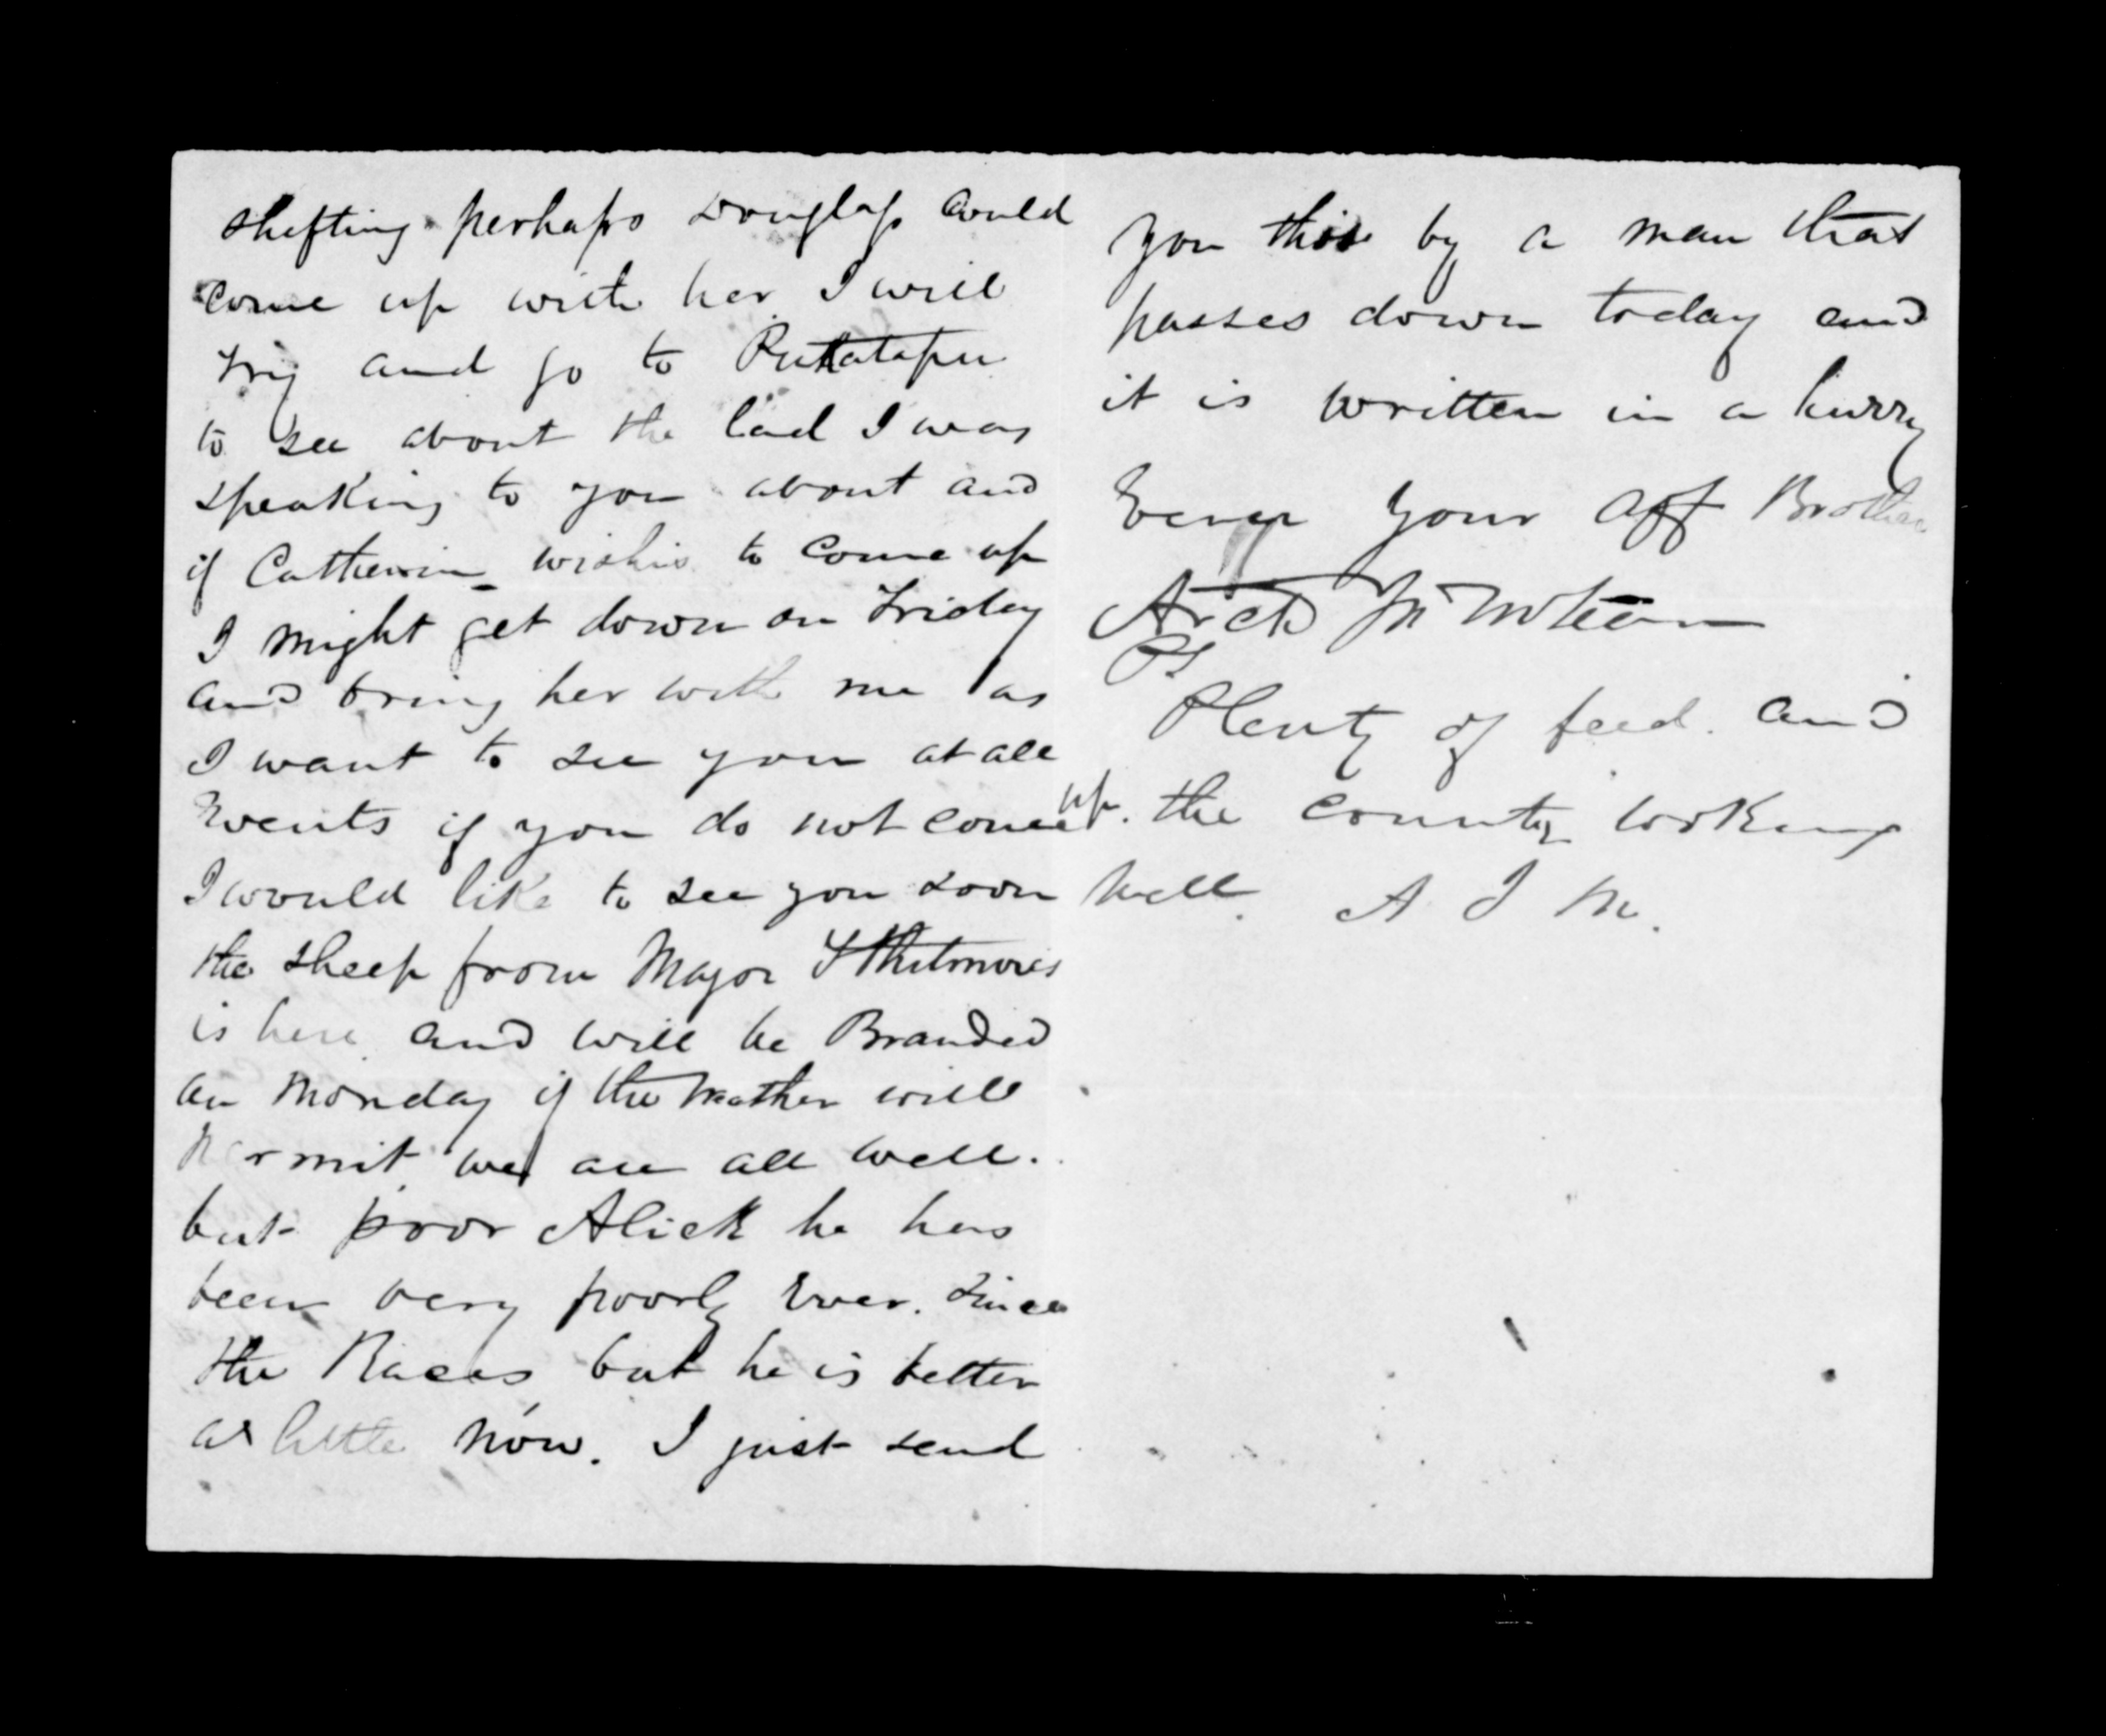 shifting perhaps Douglass Could
Come up with her I will
try and go to Putatapu
to see about the lad I was
speaking to you about and
if Catherin wishis to Come up
I might get down on Friday
and bring her with me as
I want to see you at all
Events if you do not come up.
I would like to see you soon
the sheep from Major Whitmores
is here and will be Branded
on Monday if the weather will
permit we are all well.
but poor Alick he has
been very poorly Ever. Since
the Races but he is better
a little now. I just send
you this by a man that
passes down today and
it is written in a hurry
Ever your aff Brother
Archd McLean
PS
Plenty of feed. and
the county looking
well. A J M.